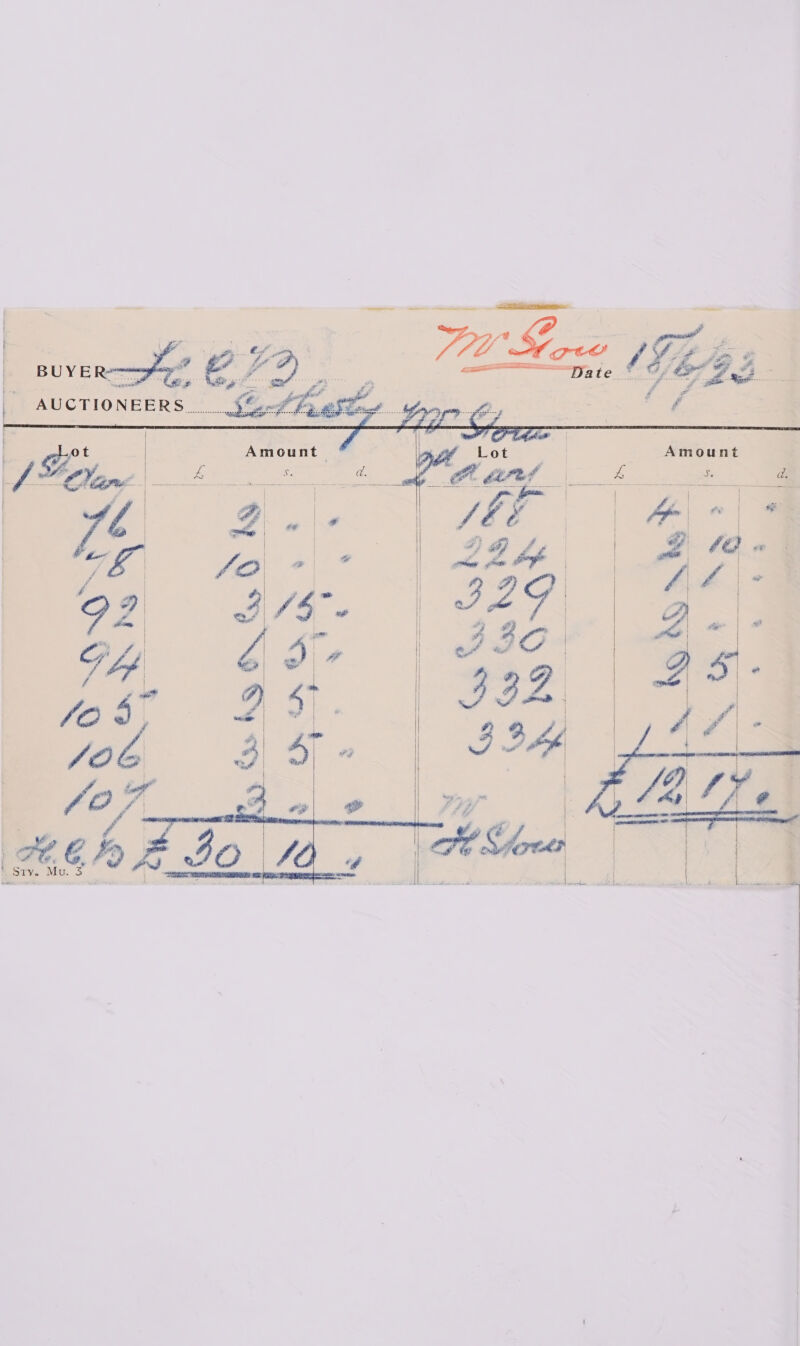 BUYER Date 18/6/23
AUCTIONEERS Sotheby Mr
Lot Amount Lot Amount
1st Day £ s. d. 2nd Day £ s. d.
76 2 " " 188 4 " "
78 10 " " 224 2 10 "
92 3 15 " 329 1 1 "
94 6 5 " 330 2 " "
105 2 5 " 332 2 5 "
106 3 5 " 334 1 1 "
107 3 " " £ 12 17 "
£ 30 10 "
Sty. Mu. 3